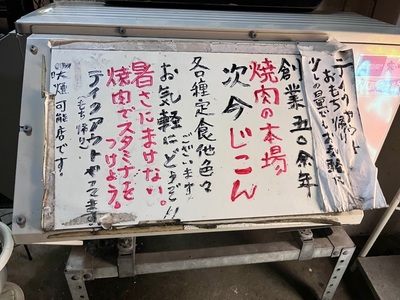 テイクアウト
おもち帰り
少しの量でもお気軽に
創業五〇余年
焼肉の本場
次今じこん
各種定食他色々
ございます
お気軽にどうぞ!!
暑さにまけない。
焼肉でスタミナを
つけよう。
テイクアウトやってます。
(もち帰り)
喫煙可能店です。